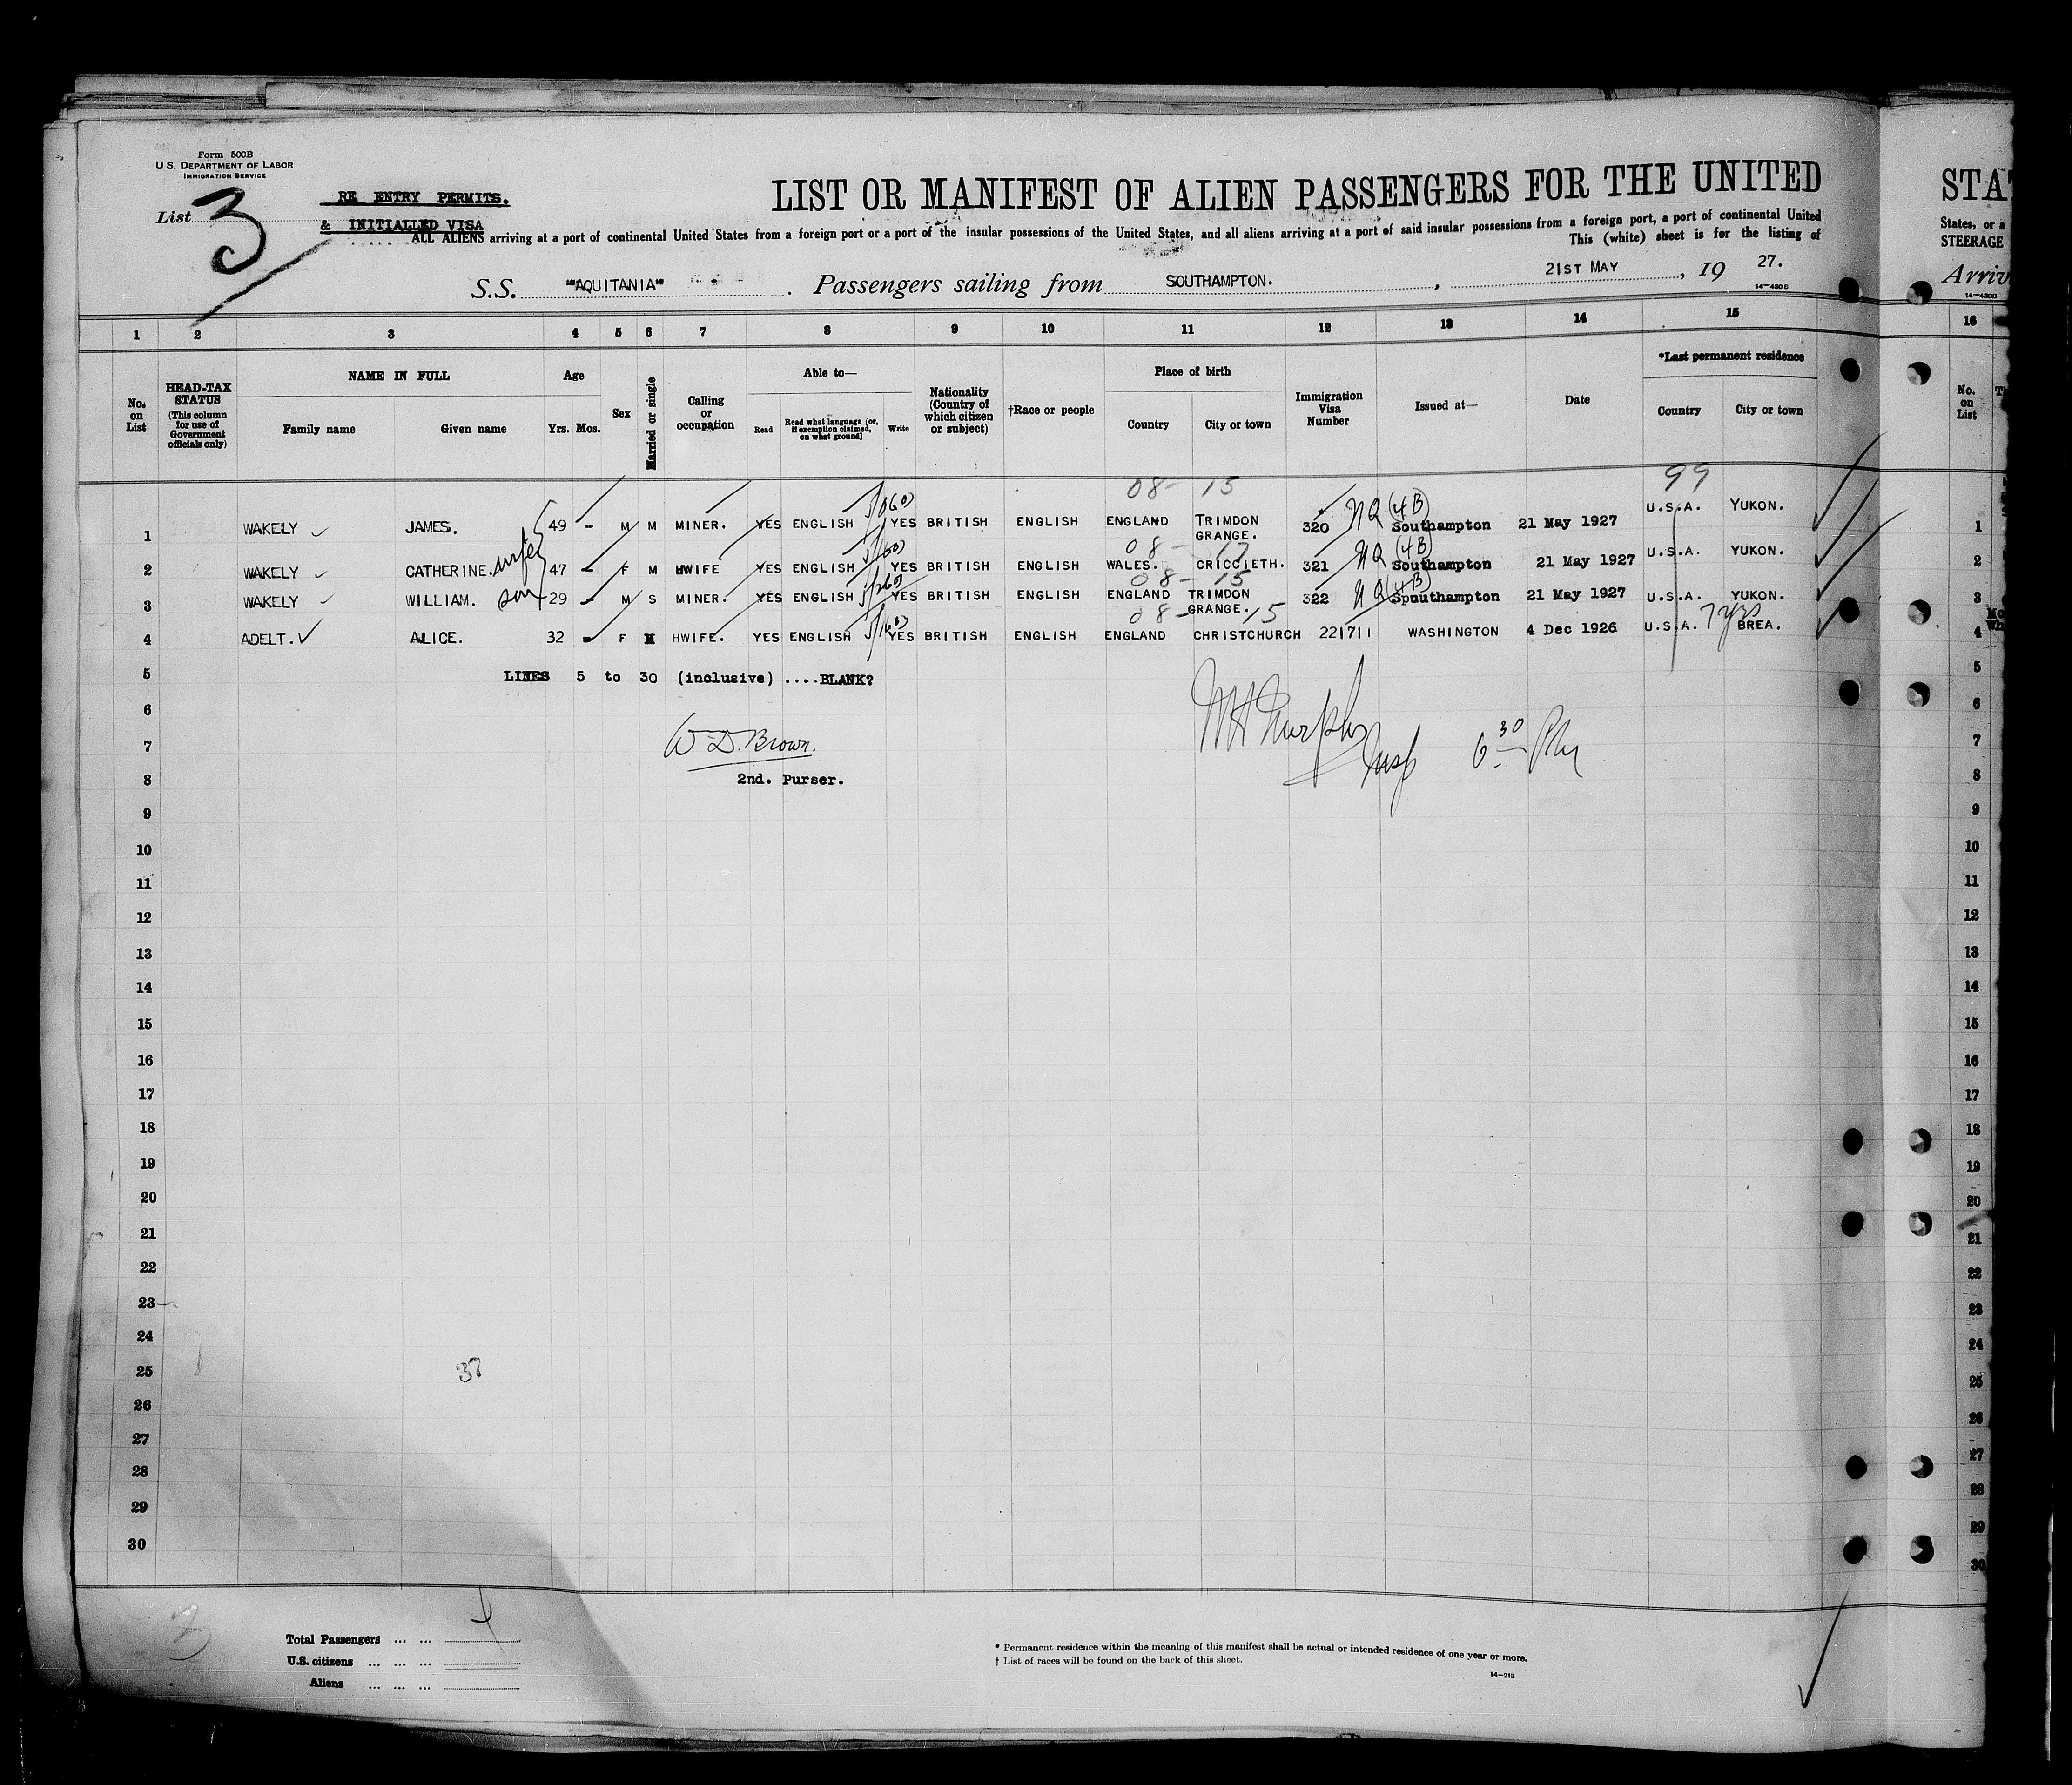 Form 500B
U.S. DEPARTMENT OF LABOR
IMMIGRATION SERVICE
List 3
RE ENTRY PERMITS.
& INITIALLED VISA
LIST OR MANIFEST OF ALIEN PASSENGERS FOR THE UNITED
ALL ALIENS arriving at a port of continental United States from a foreign port or a port of the insular possessions of the United States, and all aliens arriving at a port of said insular possessions from a foreign port, a port of continental United
This (white) sheet is for the listing of
S.S. "AQUITANIA" . Passengers sailing from SOUTHAMPTON. , 21ST MAY , 19 27.
14-430B
1 2 3 4 5 6 7 8 9 10 11 12 13 14 15
No. on List
HEAD-TAX STATUS (This column for use of Government officials only)
NAME IN FULL
Family name Given name
Age
Yrs. Mos.
Sex
Married or single
Calling or occupation
Able to—
Read Read what language [or, if exemption claimed, on what ground] Write
Nationality (Country of which citizen or subject)
†Race or people
Place of birth
Country City or town
Immigration Visa Number
Issued at—
Date
*Last permanent residence
Country City or town
08- 15 99
1 WAKELY JAMES. 49 - M M MINER. YES ENGLISH YES BRITISH ENGLISH ENGLAND TRIMDON GRANGE. 320 NQ (4B) Southampton 21 May 1927 U.S.A. YUKON.
08- 17
2 WAKELY CATHERINE. wife 47 - F M HWIFE YES ENGLISH YES BRITISH ENGLISH WALES. CRICCIETH. 321 NQ (4B) Southampton 21 May 1927 U.S.A. YUKON.
08- 15
3 WAKELY WILLIAM. son 29 - M S MINER. YES ENGLISH YES BRITISH ENGLISH ENGLAND TRIMDON GRANGE. 322 NQ (4B) Spouthampton 21 May 1927 U.S.A. YUKON.
08- 15 7 yrs
4 ADELT. ALICE. 32 - F M HWIFE. YES ENGLISH YES BRITISH ENGLISH ENGLAND CHRISTCHURCH 221711 WASHINGTON 4 Dec 1926 U.S.A. BREA.
5 LINES 5 to 30 (inclusive) ....BLANK?
6
7 W D. Brown. M H Murphy Insp 6 30 PM
8 2nd. Purser.
9
10
11
12
13
14
15
16
17
18
19
20
21
22
23
24
25 37
26
27
28
29
30
Total Passengers ... ...
U.S. citizens ... ... ...
Aliens ... ... ...
* Permanent residence within the meaning of this manifest shall be actual or intended residence of one year or more.
† List of races will be found on the back of this sheet.
14-213
STAT
States, or a
STEERAGE
Arriv
14-430B
16
No. on List
1
2
3
4
5
6
7
8
9
10
11
12
13
14
15
16
17
18
19
20
21
22
23
24
25
26
27
28
29
30